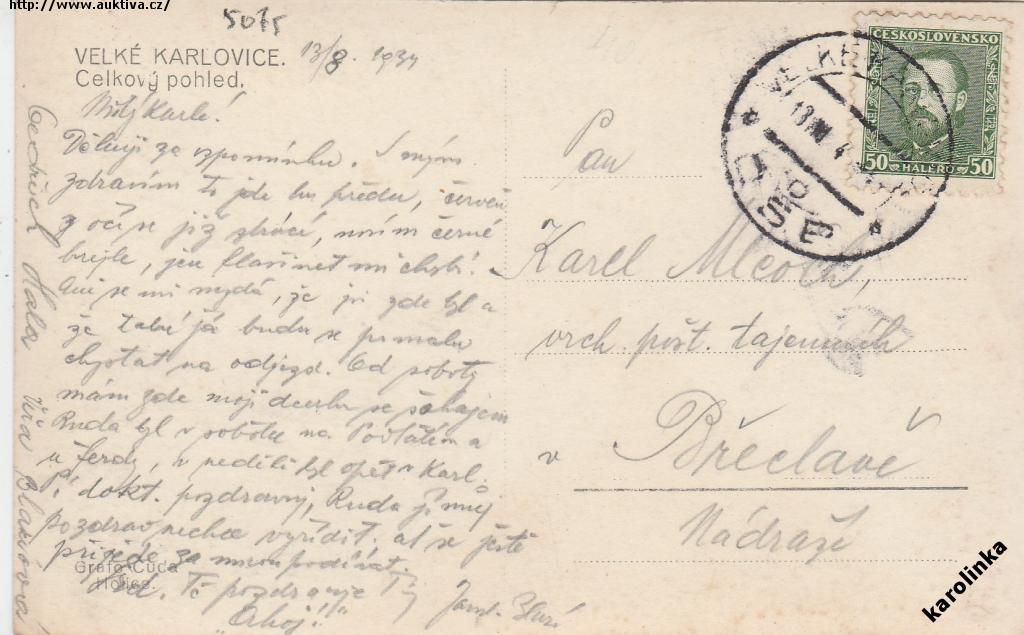 http://www.auktiva.cz/
5075
VELKÉ KARLOVICE. 13/8 1934
Celkový pohled.
Milý Karle!
Děkuji za vzpomínku. S mým
zdravím to jde ku předu, červeň
z očí se již ztrácí, nosím černé
brejle, jen klarinet mi chybí.
Ani se mi nezdá, že jsi zde byl a
že také já budu se pomalu
chystat na odjezd. Od soboty
mám zde moji dcerku se
Ruda byl v sobotu na a
u Ferdy, v neděli byl opět v Karl.
Pí dokt. pozdravuj, Ruda jí můj
pozdrav nechce vyřídit. ať se ještě
přijede za mnou podívat.
Grafo Čuda
Holice
Zd. Tě pozdravuje Tvůj
"Ahoj!!"
Hala
Věra
ČESKOSLOVENSKO
50 HALÉŘŮ 50
VELKÉ KA
13 VIII 4
Pan
Karel
vrch. pošt. tajemník
v Břeclavě
Nádraží
karolinka